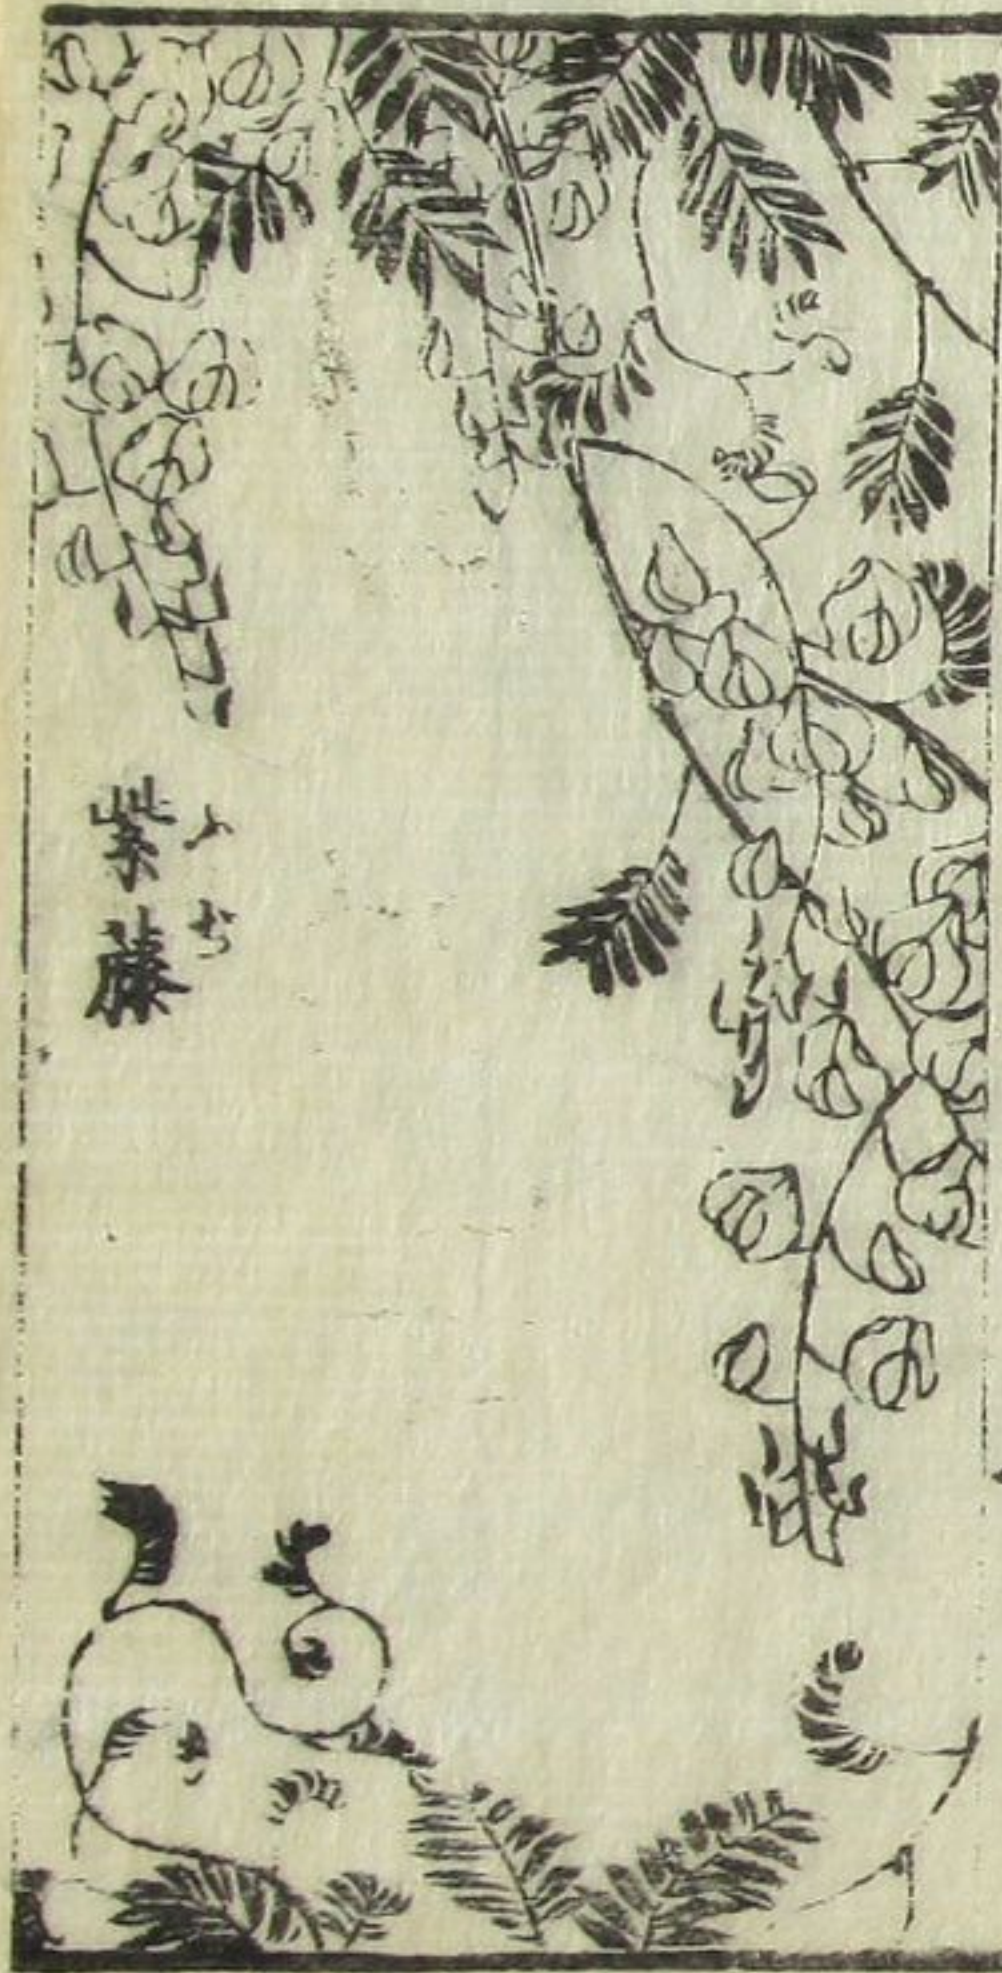 紫藤
ふぢ